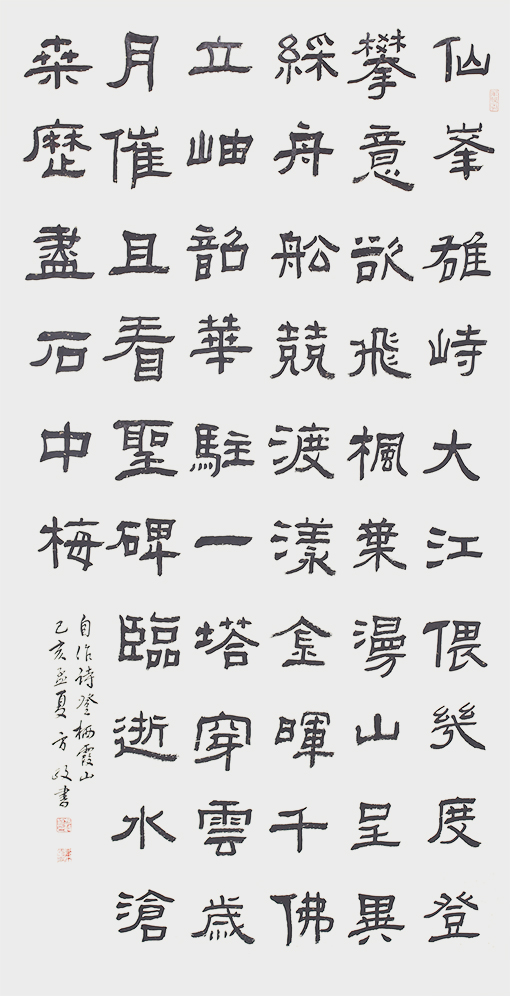 仙峯雄峙大江偎幾度登
攀意欲飛楓葉漫山呈異
綵舟舩競渡漾金暉千佛
立岫韶華駐一塔穿雲歲
月催且看聖碑臨逝水滄
桒歷盡石中梅
自作詩登栖霞山
乙亥孟夏方政書